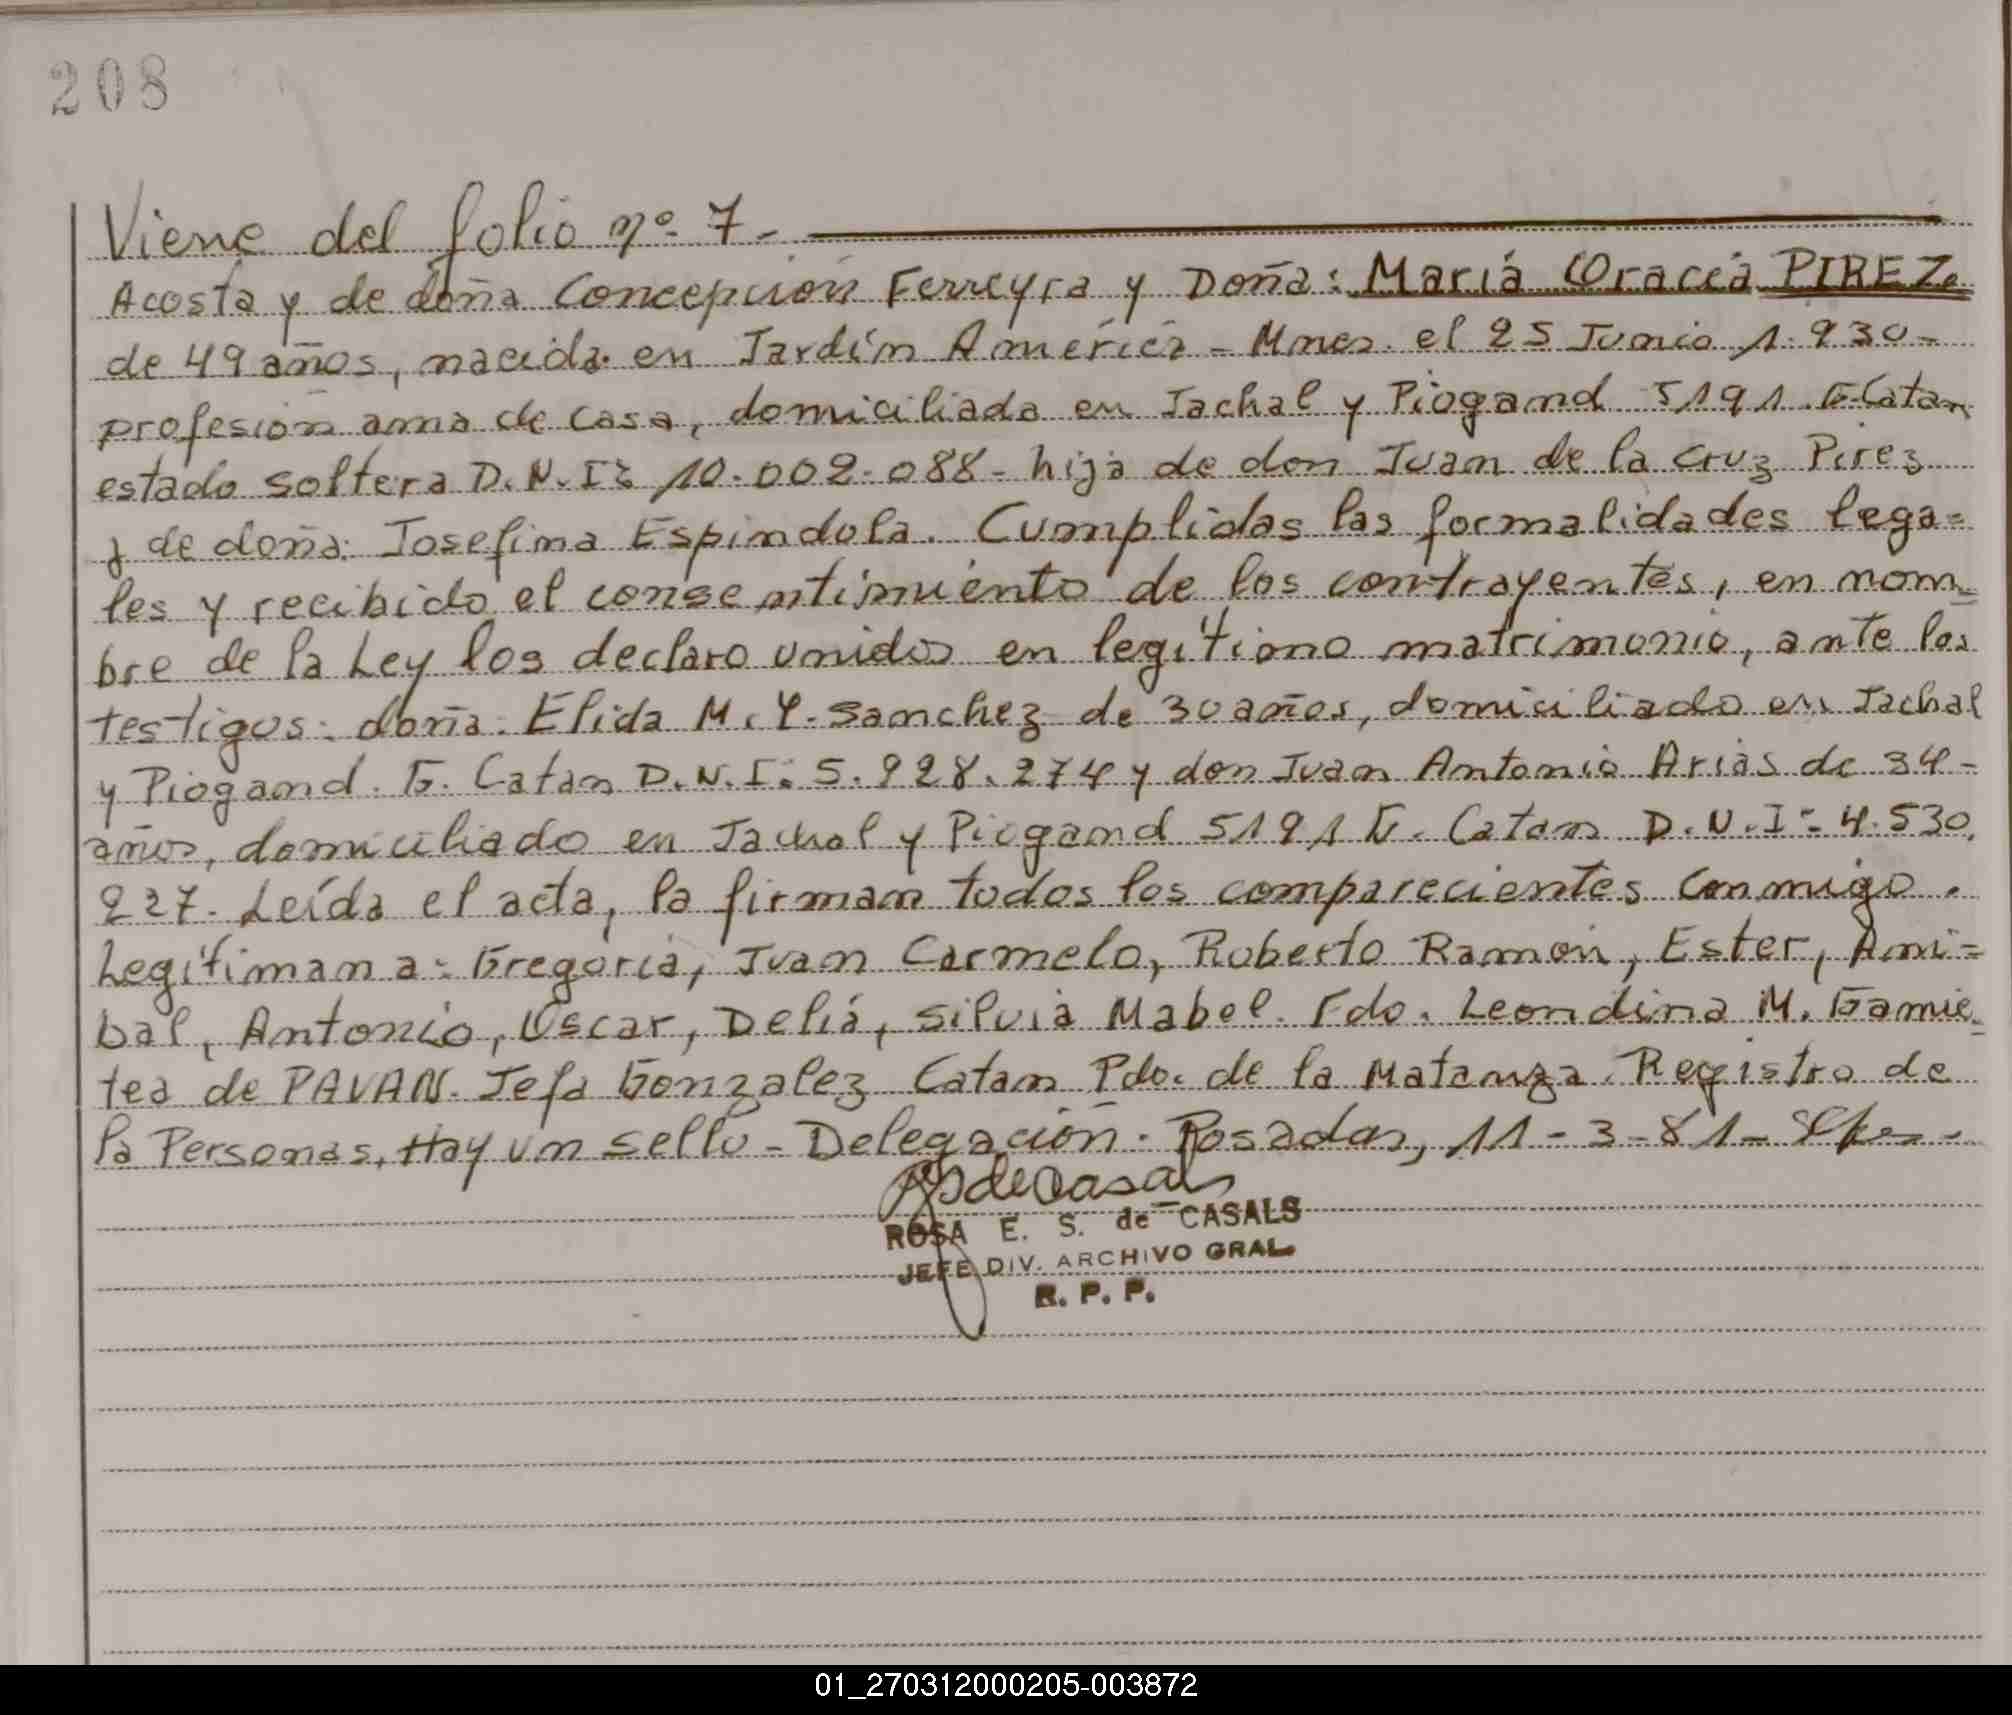 208
Viene del folio nº 7 -
Acosta y de doña Concepción Ferreyra y Doña: María Oracia PIREZ.
de 49 años, nacida en Jardín América - Mnes. el 25 Junio 1.930 -
profesión ama de casa, domiciliada en Jachal y Piogand 5191. G. Catan
estado soltera D.N.I: 10.002.088 - hija de don Juan de la Cruz Pirez
y de doña: Josefina Espindola. Cumplidas las formalidades lega=
les y recibido el consentimiento de los contrayentes, en nom=
bre de la Ley los declaro unidos en legítimo matrimonio, ante los
testigos: doña. Elida M. Y. Sanchez de 30 años, domiciliado en Jachal
y Piogand. G. Catan D.N.I: 5.928.274 y don Juan Antonio Arias de 34 -
años, domiciliado en Jachal y Piogand 5191 G. Catan D.N.I: 4.530.
227. Leída el acta, la firman todos los comparecientes conmigo.
Legitiman a: Gregoria, Juan Carmelo, Roberto Ramón, Ester, Ani=
bal, Antonio, Oscar, Delia, Silvia Mabel. Fdo. Leondina M. Gamie=
tea de PAVAN. Jefa Gonzalez Catan Pdo. de la Matanza. Registro de
la Personas. Hay un sello - Delegación. Posadas, 11-3-81-
ROSA E. S. de CASALS
JEFE DIV. ARCHIVO GRAL.
R. P. P.
01_270312000205-003872